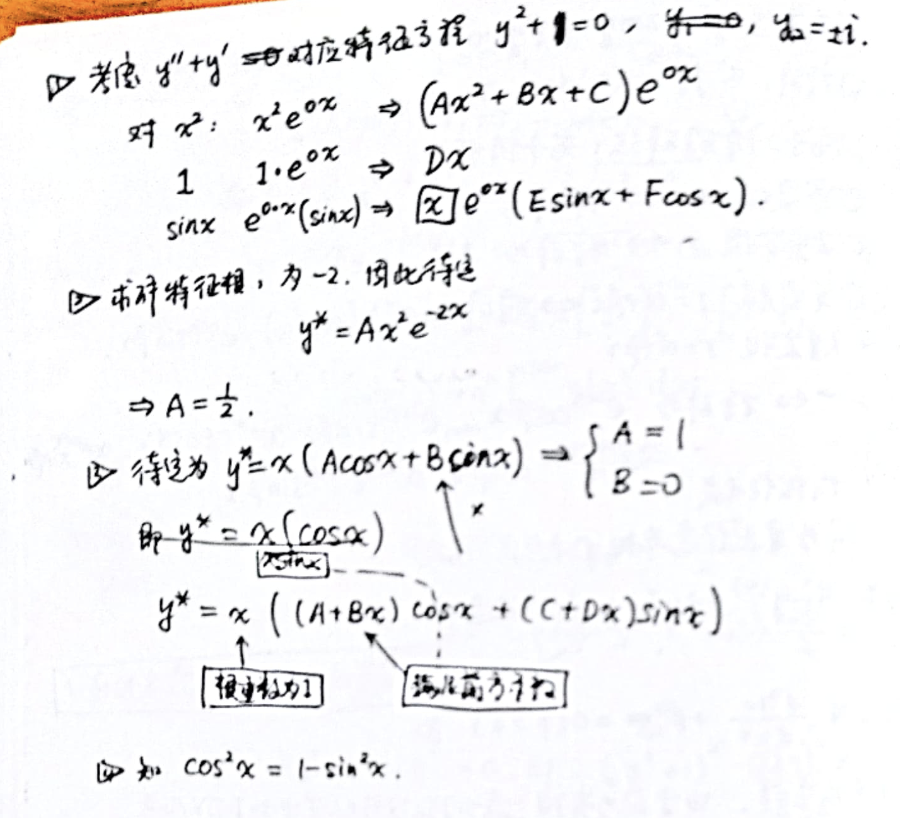 ① 考虑 y''+y' 对应特征方程 y²+1=0, y₁=0, y₂=±i.
对 x²: x²e^{0x} ⇒ (Ax²+Bx+C)e^{0x}
1 1·e^{0x} ⇒ Dx
sinx e^{0·x}(sinx) ⇒ [x]e^{0x}(Esinx+Fcosx).
② 求解特征根,为-2.因此待定
y*=Ax²e^{-2x}
⇒A=1/2.
③ 待定为 y*=x(Acosx+Bsinx) ⇒ {A=1
B=0
x
即 y*=x(cosx)
xsinx
y*=x((A+Bx)cosx+(C+Dx)sinx)
根重数为1
前
④ 知 cos²x=1-sin²x.